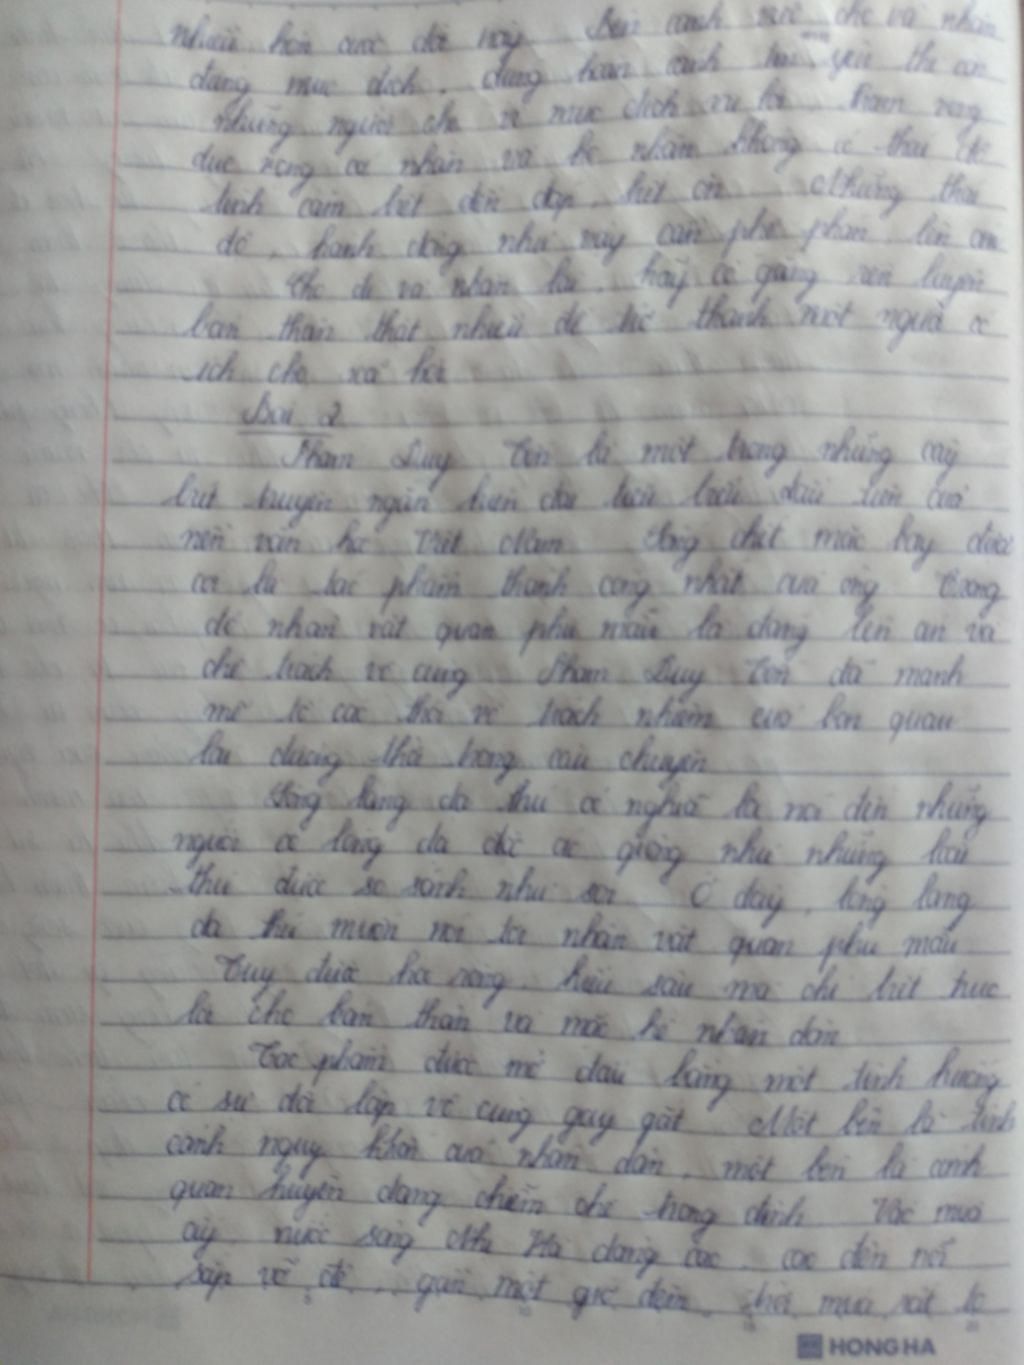 nhiều hơn ước đó vậy. Bên cạnh việc cho và nhận
đúng mục đích, đúng hoàn cảnh thì vẫn còn
những người cho vì mục đích vụ lợi, tham vọng
dục vọng cá nhân và kẻ nhận không có thái độ
tình cảm biết đền đáp, biết ơn. Những thái
độ, hành động như vậy cần phê phán, lên án
Cho đi và nhận lại, hãy cố gắng rèn luyện
bản thân thật nhiều để trở thành một người có
ích cho xã hội
Bài 2
Phạm Duy Tốn là một trong những cây
bút truyện ngắn hiện đại tiêu biểu đầu tiên của
nền văn học Việt Nam. Sống chết mặc bay được
coi là tác phẩm thành công nhất của ông. Trong
đó nhân vật quan phụ mẫu là đáng lên án và
chê trách vô cùng. Phạm Duy Tốn đã mạnh
mẽ tố cáo thói vô trách nhiệm của bọn quan
lại đương thời trong câu chuyện
Lòng lang dạ thú có nghĩa là nói đến những
người có lòng dạ độc ác giống như những loài
thú được so sánh như sói. Ở đây, lòng lang
dạ thú muốn nói tới nhân vật quan phụ mẫu
Tuy được học rộng, hiểu sâu mà chỉ biết trục
lợi cho bản thân và mặc kệ nhân dân
Tác phẩm được mở đầu bằng một tình huống
có sự đối lập vô cùng gay gắt. Một bên là tình
cảnh nguy khốn của nhân dân, một bên là cảnh
quan huyện đang chễm chệ trong đình. Vào mùa
ấy, nước sông Nhị Hà dâng cao, cao đến nỗi
sắp vỡ đê, gần một giờ đêm, trời mưa rất to
HONG HA